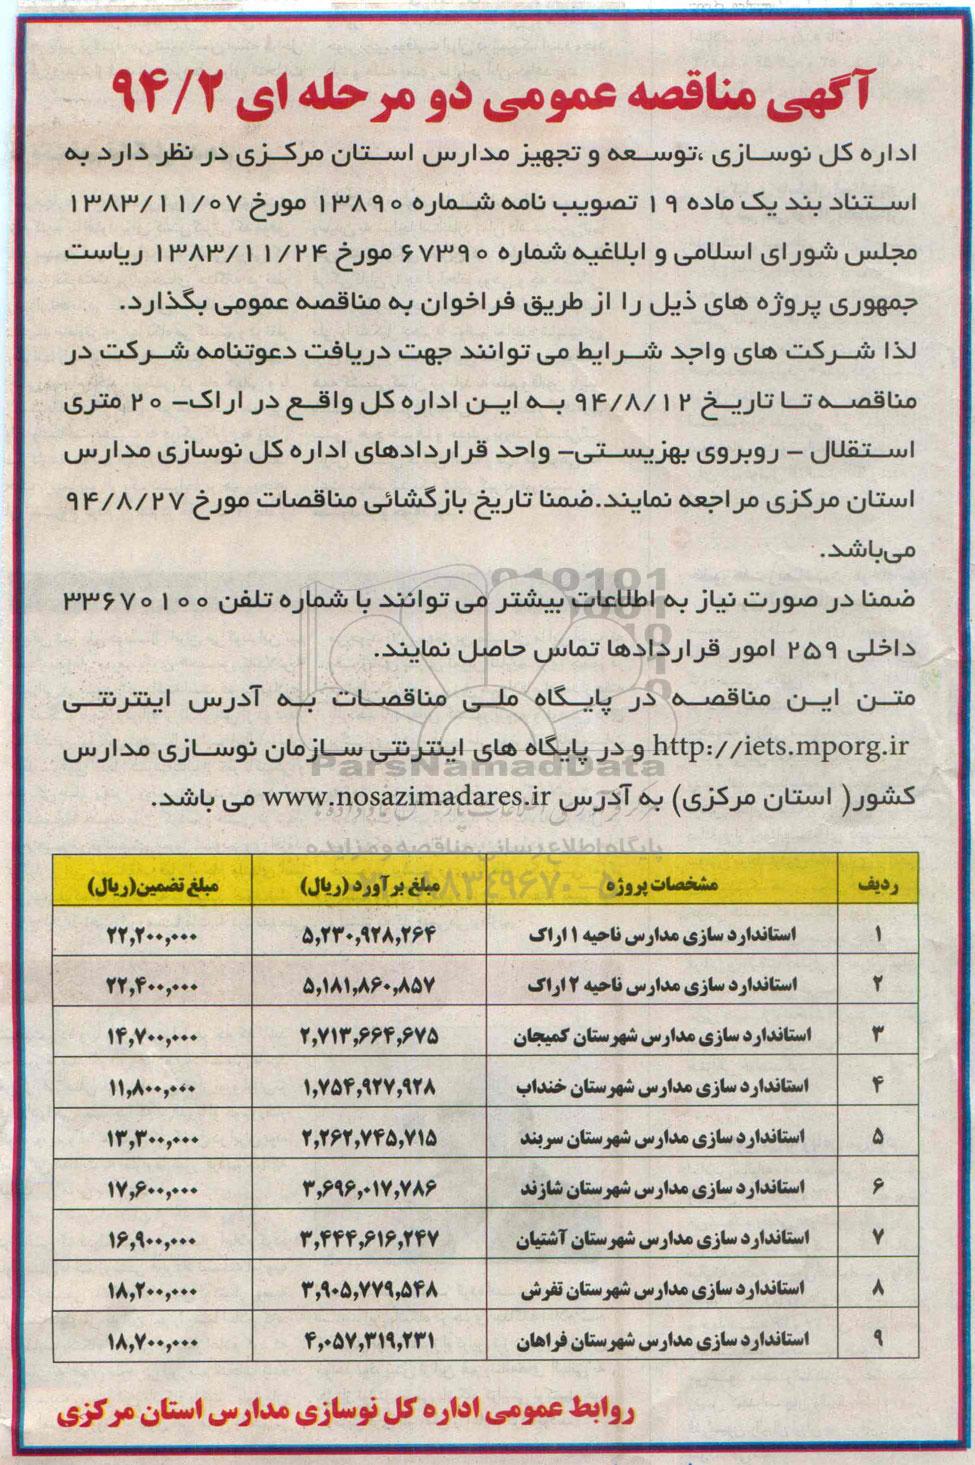 آگهی مناقصه عمومی دو مرحله ای ۹۴/۲
اداره کل نوسازی ،توسعه و تجهیز مدارس استان مرکزی در نظر دارد به
استناد بند یک ماده ۱۹ تصویب نامه شماره ۱۳۸۹۰ مورخ ۱۳۸۳/۱۱/۰۷
مجلس شورای اسلامی و ابلاغیه شماره ۶۷۳۹۰ مورخ ۱۳۸۳/۱۱/۲۴ ریاست
جمهوری پروژه های ذیل را از طریق فراخوان به مناقصه عمومی بگذارد.
لذا شرکت های واجد شرایط می توانند جهت دریافت دعوتنامه شرکت در
مناقصه تا تاریخ ۹۴/۸/۱۲ به این اداره کل واقع در اراک- ۲۰ متری
استقلال - روبروی بهزیستی- واحد قراردادهای اداره کل نوسازی مدارس
استان مرکزی مراجعه نمایند.ضمنا تاریخ بازگشائی مناقصات مورخ ۹۴/۸/۲۷
می‌باشد.
ضمنا در صورت نیاز به اطلاعات بیشتر می توانند با شماره تلفن ۳۳۶۷۰۱۰۰
داخلی ۲۵۹ امور قراردادها تماس حاصل نمایند.
متن این مناقصه در پایگاه ملی مناقصات به آدرس اینترنتی
http://iets.mporg.ir و در پایگاه های اینترنتی سازمان نوسازی مدارس
کشور( استان مرکزی) به آدرس www.nosazimadares.ir می باشد.
ParsNamadData
پایگاه اطلاع رسانی مناقصه و مزایده
ردیف مشخصات پروژه مبلغ برآورد (ریال) مبلغ تضمین(ریال)
۱ استاندارد سازی مدارس ناحیه ۱ اراک ۵,۲۳۰,۹۲۸,۲۶۴ ۲۲,۲۰۰,۰۰۰
۲ استاندارد سازی مدارس ناحیه ۲ اراک ۵,۱۸۱,۸۶۰,۸۵۷ ۲۲,۴۰۰,۰۰۰
۳ استاندارد سازی مدارس شهرستان کمیجان ۲,۷۱۳,۶۶۴,۶۷۵ ۱۴,۷۰۰,۰۰۰
۴ استاندارد سازی مدارس شهرستان خنداب ۱,۷۵۴,۹۲۷,۹۲۸ ۱۱,۸۰۰,۰۰۰
۵ استاندارد سازی مدارس شهرستان سربند ۲,۲۶۲,۷۴۵,۷۱۵ ۱۳,۳۰۰,۰۰۰
۶ استاندارد سازی مدارس شهرستان شازند ۳,۶۹۶,۰۱۷,۷۸۶ ۱۷,۶۰۰,۰۰۰
۷ استاندارد سازی مدارس شهرستان آشتیان ۳,۴۴۴,۶۱۶,۲۴۷ ۱۶,۹۰۰,۰۰۰
۸ استاندارد سازی مدارس شهرستان تفرش ۳,۹۰۵,۷۷۹,۵۴۸ ۱۸,۲۰۰,۰۰۰
۹ استاندارد سازی مدارس شهرستان فراهان ۴,۰۵۷,۳۱۹,۲۳۱ ۱۸,۷۰۰,۰۰۰
روابط عمومی اداره کل نوسازی مدارس استان مرکزی